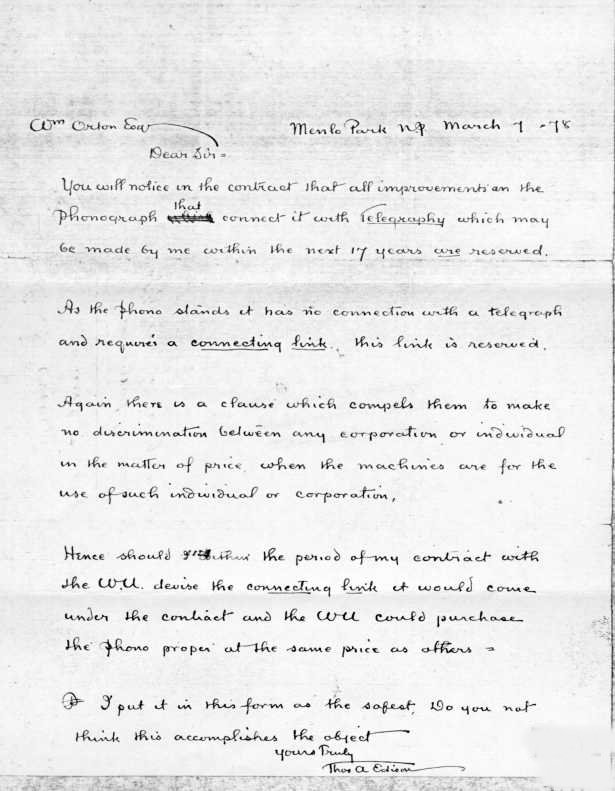 Wm Orton Esq
Menlo Park NJ March 7 -78
Dear Sir=
You will notice in the contract that all improvements on the
that
phonograph connect it with Telegraphy which may
be made by me within the next 17 years are reserved.
As the phono stands it has no connection with a telegraph
and requires a connecting link. this link is reserved.
Again there is a clause which compels them to make
no discrimination between any corporation or individual
in the matter of price when the machines are for the
use of such individual or corporation,
Hence should within the period of my contract with
the W.U. devise the connecting link it would come
under the contract and the WU could purchase
the phono proper at the same price as others =
I put it in this form as the safest, Do you not
think this accomplishes the object
yours Truly
Thos A Edison